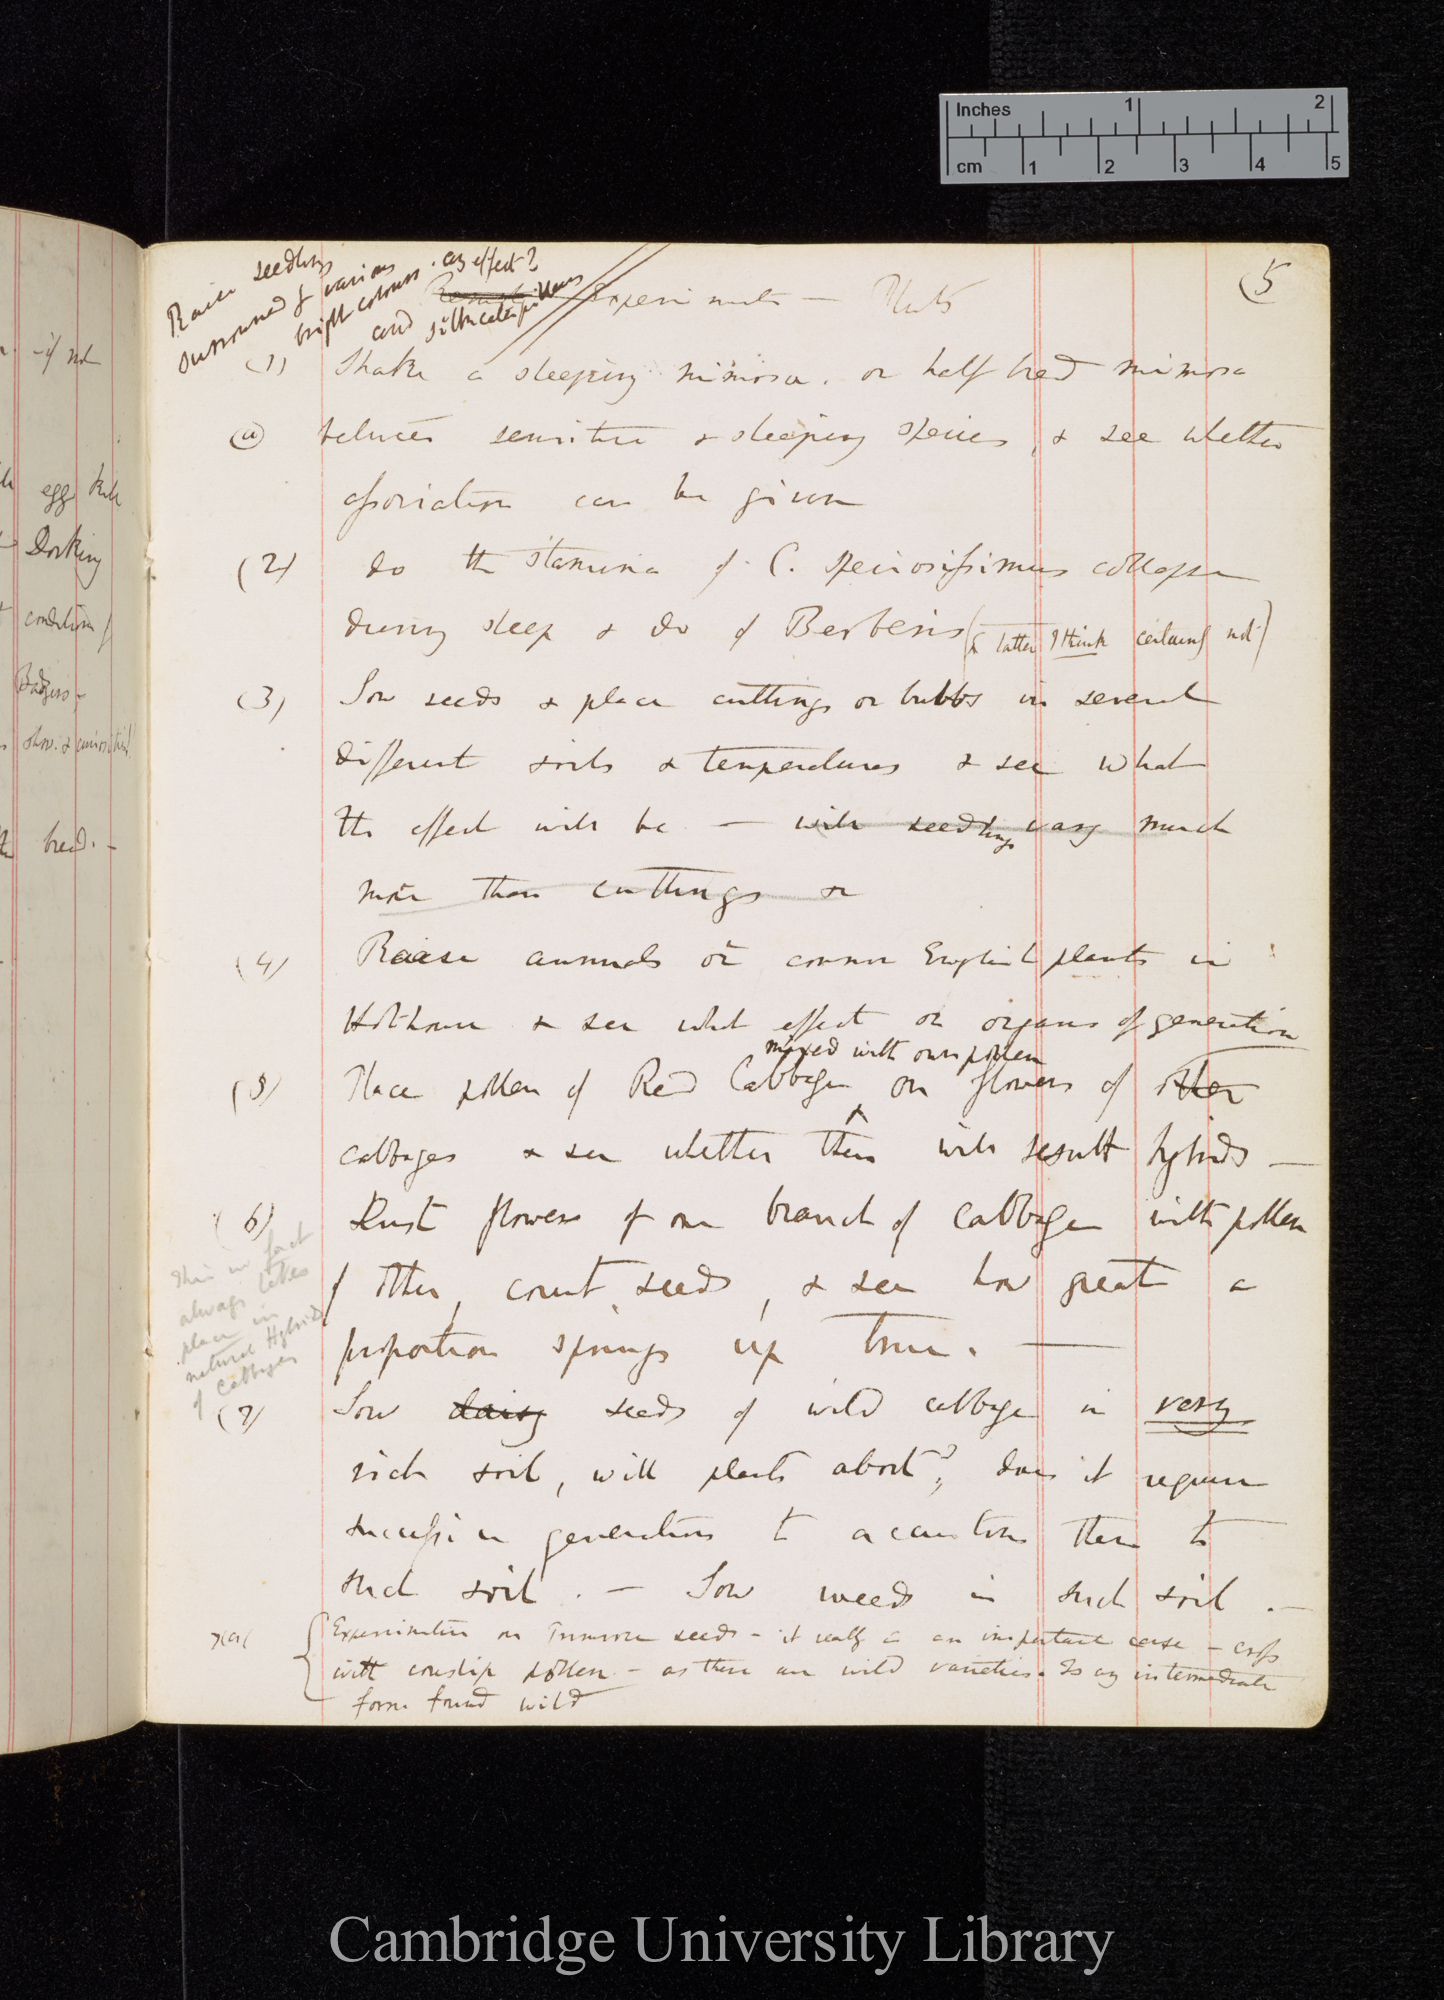 Inches 1 2
cm 1 2 3 4 5
5
Raise seedlings
surrouned by various
bright colours. any effect?
and silk caterpillars
Experiments — Plants
(1) Shake a sleeping mimosa. or half bred mimosa
(a) between sensitive & sleeping species, & see whether
association can be given
(2) do the stamina of C. speciosissimus collapse
during sleep & do of Berberis (& latter I think certainly not)
(3) Sow seeds & place cuttings or bulbs in several
different soils & temperatures & see what
the effect will be — will seedlings vary much
more than cuttings &
(4) Raise annuals or common English plants in
Hot-house & see what effect on organs of generation
mixed with own pollen
(5) Place pollen of Red Cabbage on flowers of other
cabbages & see whether there will result hybrids —
(6) Dust flowers of one branch of cabbage with pollen
of other, count seeds, & see how great a
proportion springs up true. —
This in fact
always takes
place in
natural Hybrids
of Cabbages
(7) Sow daisy seeds of wild cabbage in very
rich soil, will plants abort?, does it require
successive generations to accustom them to
such soil. — Sow weeds in such soil. —
Experimentise on Primrose seeds — it really is an important case — cross
with cowslip pollen — as there are wild varieties. Is any intermediate
form found wild
- if not
egg
Dorking
condition of
Badgers -
bred. -
Cambridge University Library